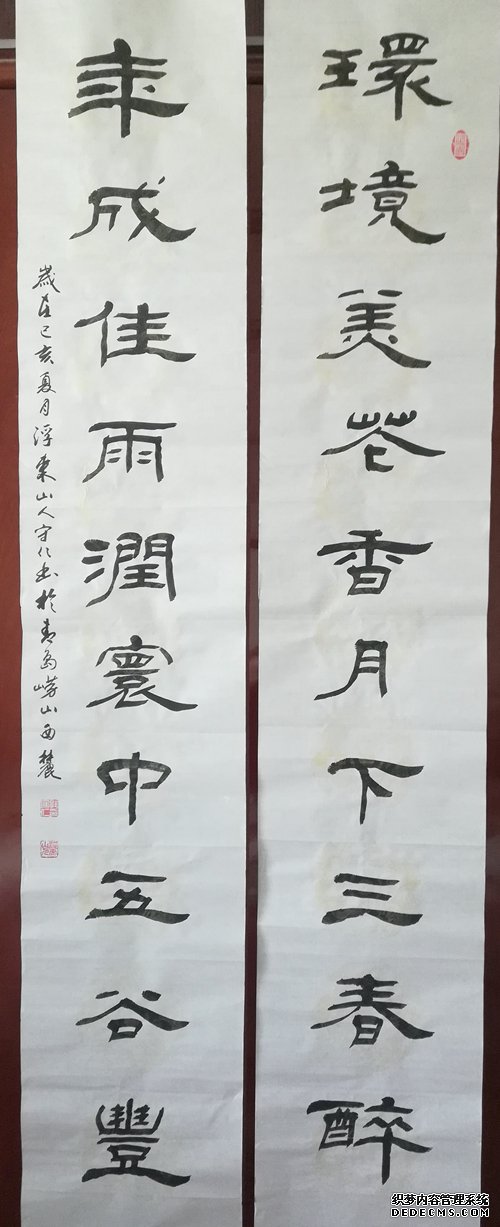 環境美花香月下三春醉
年成佳雨潤寰中五谷豐
歲在己亥夏月浮山人守仁书於青島嶗山西麓
织梦内容管理系统
DEDECMS.COM